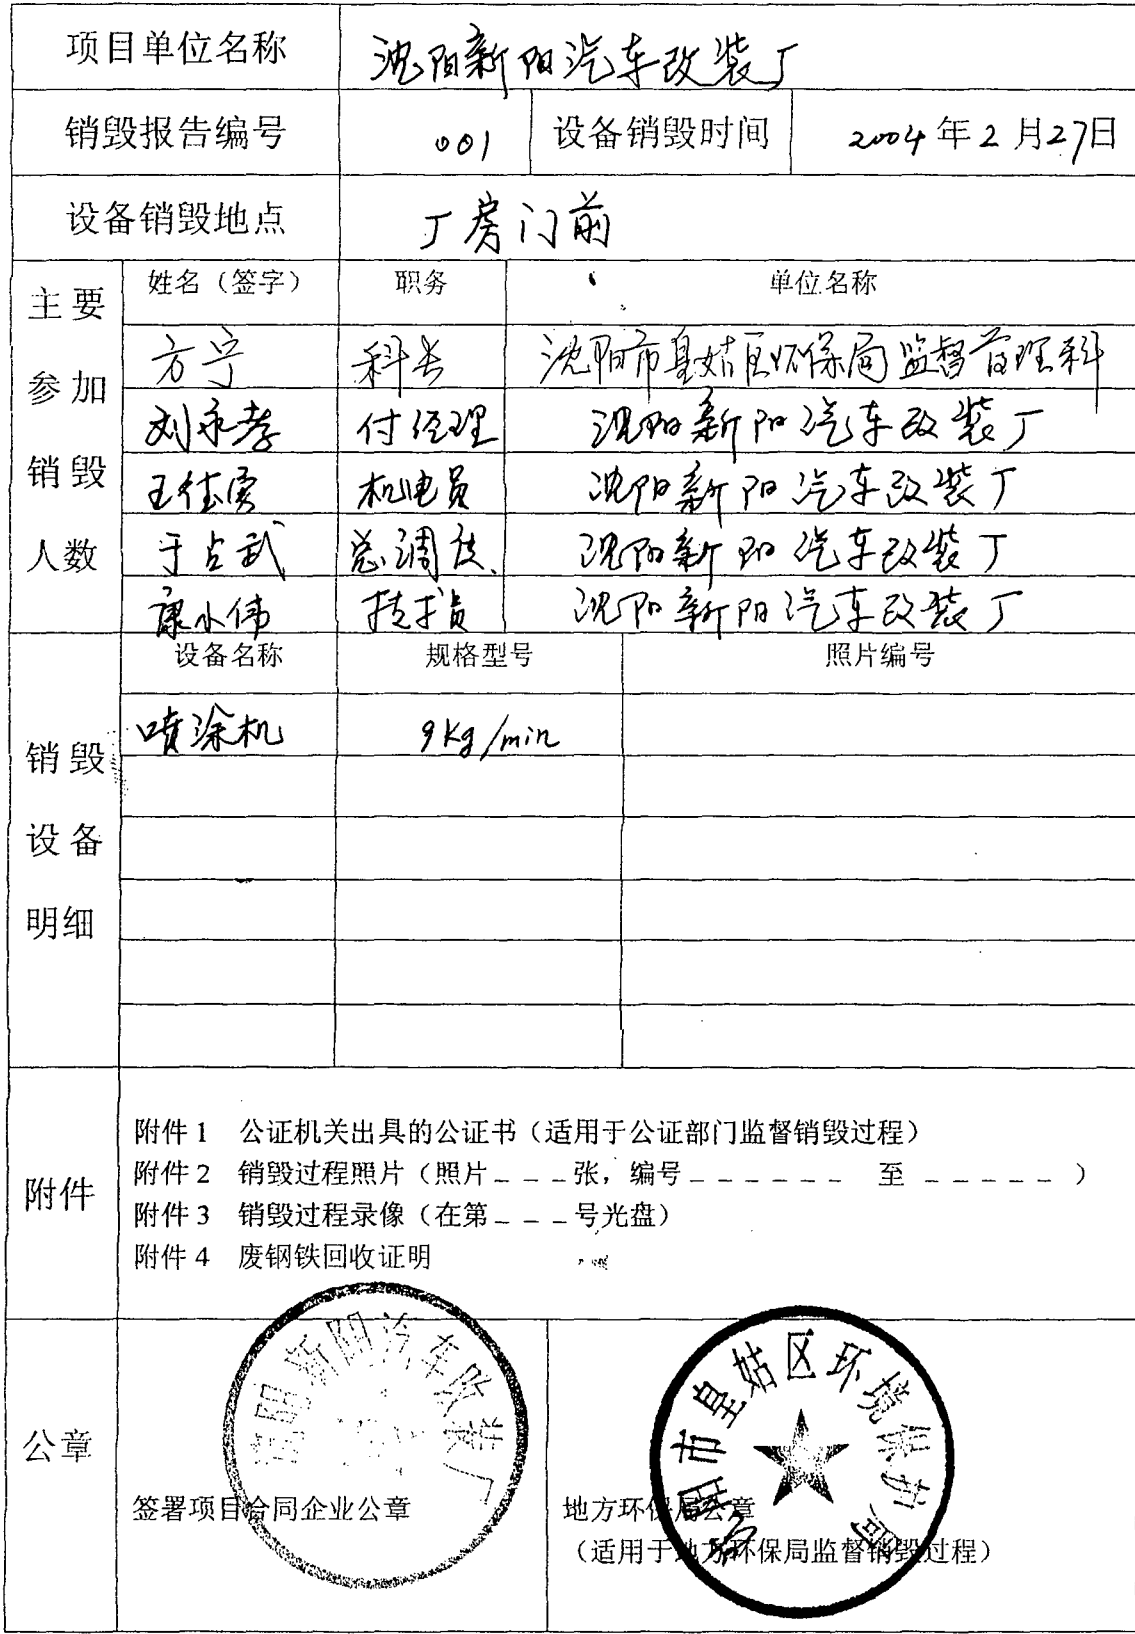 项目单位名称 沈阳新阳汽车改装厂
销毁报告编号 001 设备销毁时间 2004年2月27日
设备销毁地点 厂房门前
主要参加销毁人数
姓名（签字） 职务 单位名称
方宁 科长 沈阳市皇姑区环保局监督管理科
刘永孝 付经理 沈阳新阳汽车改装厂
王佳宾 机电员 沈阳新阳汽车改装厂
于占武 总调度 沈阳新阳汽车改装厂
康小伟 技术员 沈阳新阳汽车改装厂
销毁设备明细
设备名称 规格型号 照片编号
喷涂机 9Kg/min
附件
附件1 公证机关出具的公证书（适用于公证部门监督销毁过程）
附件2 销毁过程照片（照片___张，编号______ 至 _____ ）
附件3 销毁过程录像（在第___号光盘）
附件4 废钢铁回收证明
公章
沈阳新阳汽车改装厂
签署项目合同企业公章
沈阳市皇姑区环境保护局
地方环保局公章
（适用于地方环保局监督销毁过程）